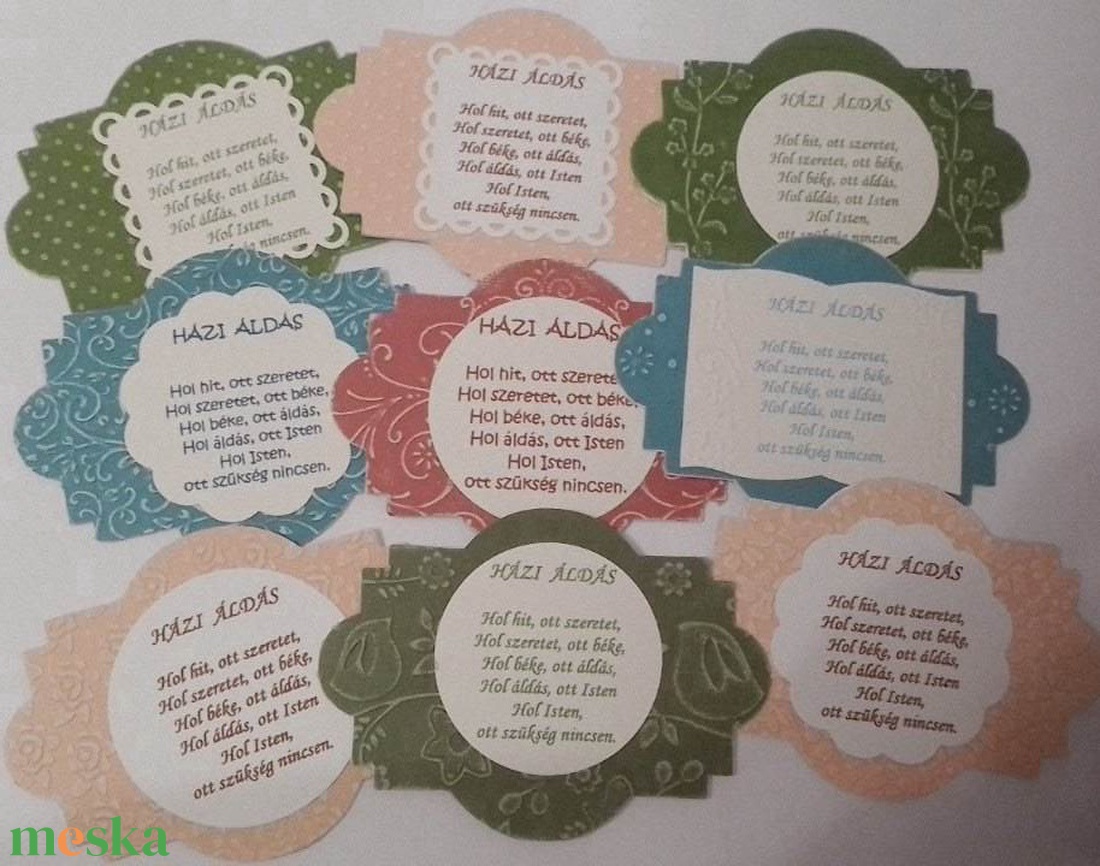 HÁZI ÁLDÁS
Hol hit, ott szeretet,
Hol szeretet, ott béke,
Hol béke, ott áldás,
Hol áldás, ott Isten
Hol Isten,
nincsen.
HÁZI ÁLDÁS
Hol hit, ott szeretet,
Hol szeretet, ott béke,
Hol béke, ott áldás,
Hol áldás, ott Isten
Hol Isten,
ott szükség nincsen.
HÁZI ÁLDÁS
Hol hit, ott szeretet,
Hol szeretet, ott béke,
Hol béke, ott áldás,
Hol áldás, ott Isten
Hol Isten,
ott szükség nincsen.
HÁZI ÁLDÁS
Hol hit, ott szeretet,
Hol szeretet, ott béke,
Hol béke, ott áldás,
Hol áldás, ott Isten
Hol Isten,
ott szükség nincsen.
HÁZI ÁLDÁS
Hol hit, ott szerete
Hol szeretet, ott béke,
Hol béke, ott áldás,
Hol áldás, ott Isten
Hol Isten,
ott szükség nincsen.
HÁZI ÁLDÁS
Hol hit, ott szeretet,
Hol szeretet, ott béke,
Hol béke, ott áldás,
Hol áldás, ott Isten
Hol Isten,
ott szükség nincsen.
HÁZI ÁLDÁS
Hol hit, ott szeretet,
Hol szeretet, ott béke,
Hol béke, ott áldás,
Hol áldás, ott Isten
Hol Isten,
ott szükség nincsen.
HÁZI ÁLDÁS
Hol hit, ott szeretet,
Hol szeretet, ott béke,
Hol béke, ott áldás,
Hol áldás, ott Isten
Hol Isten,
ott szükség nincsen.
HÁZI ÁLDÁS
Hol hit, ott szeretet,
Hol szeretet, ott béke,
Hol béke, ott áldás,
Hol áldás, ott Isten
Hol Isten,
ott szükség nincsen.
meska